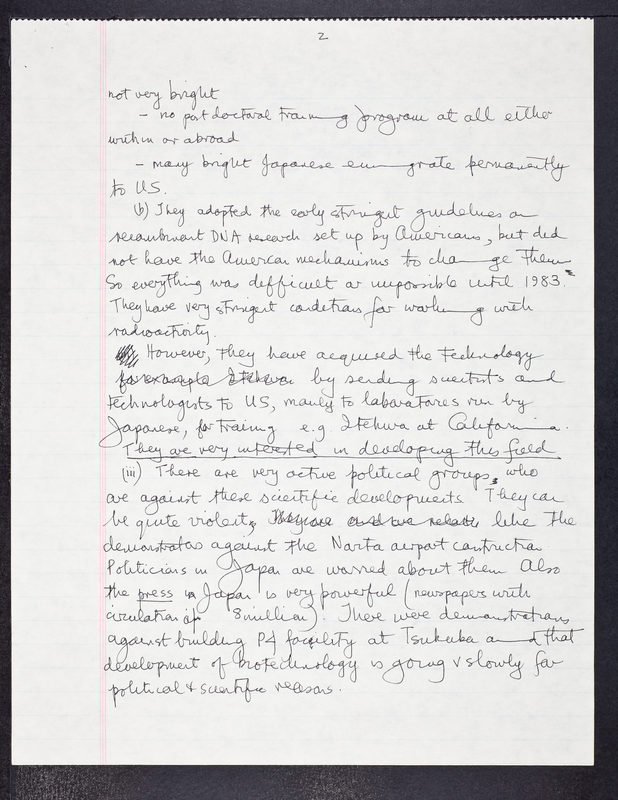 2
not very bright
- no post doctoral training program at all either
within or abroad
- many bright Japanese emmigrate permanently
to US.
(b) They adopted the early stringent guidelines on
recombinant DNA research set up by Americans, but did
not have the American mechanisms to change them
So everything was difficult or impossible until 1983.
They have very stringent conditions for working with
radioactivity.
However, they have acquired the technology
for example by sending scientists and
technologists to US, mainly to laboratories run by
Japanese, for training e.g. Itakura at California.
They are very interested in developing this field
(iii) There are very active political groups, who
are against these scientific developments They can
be quite violent, like the
demonstrators against the Narita airport construction.
Politicians in Japan are worried about them Also
the press in Japan is very powerful (newspapers with
circulation of 8 million). There were demonstrations
against building P4 facility at Tsukuba and that
development of biotechnology is going v slowly for
political + scientific reasons.